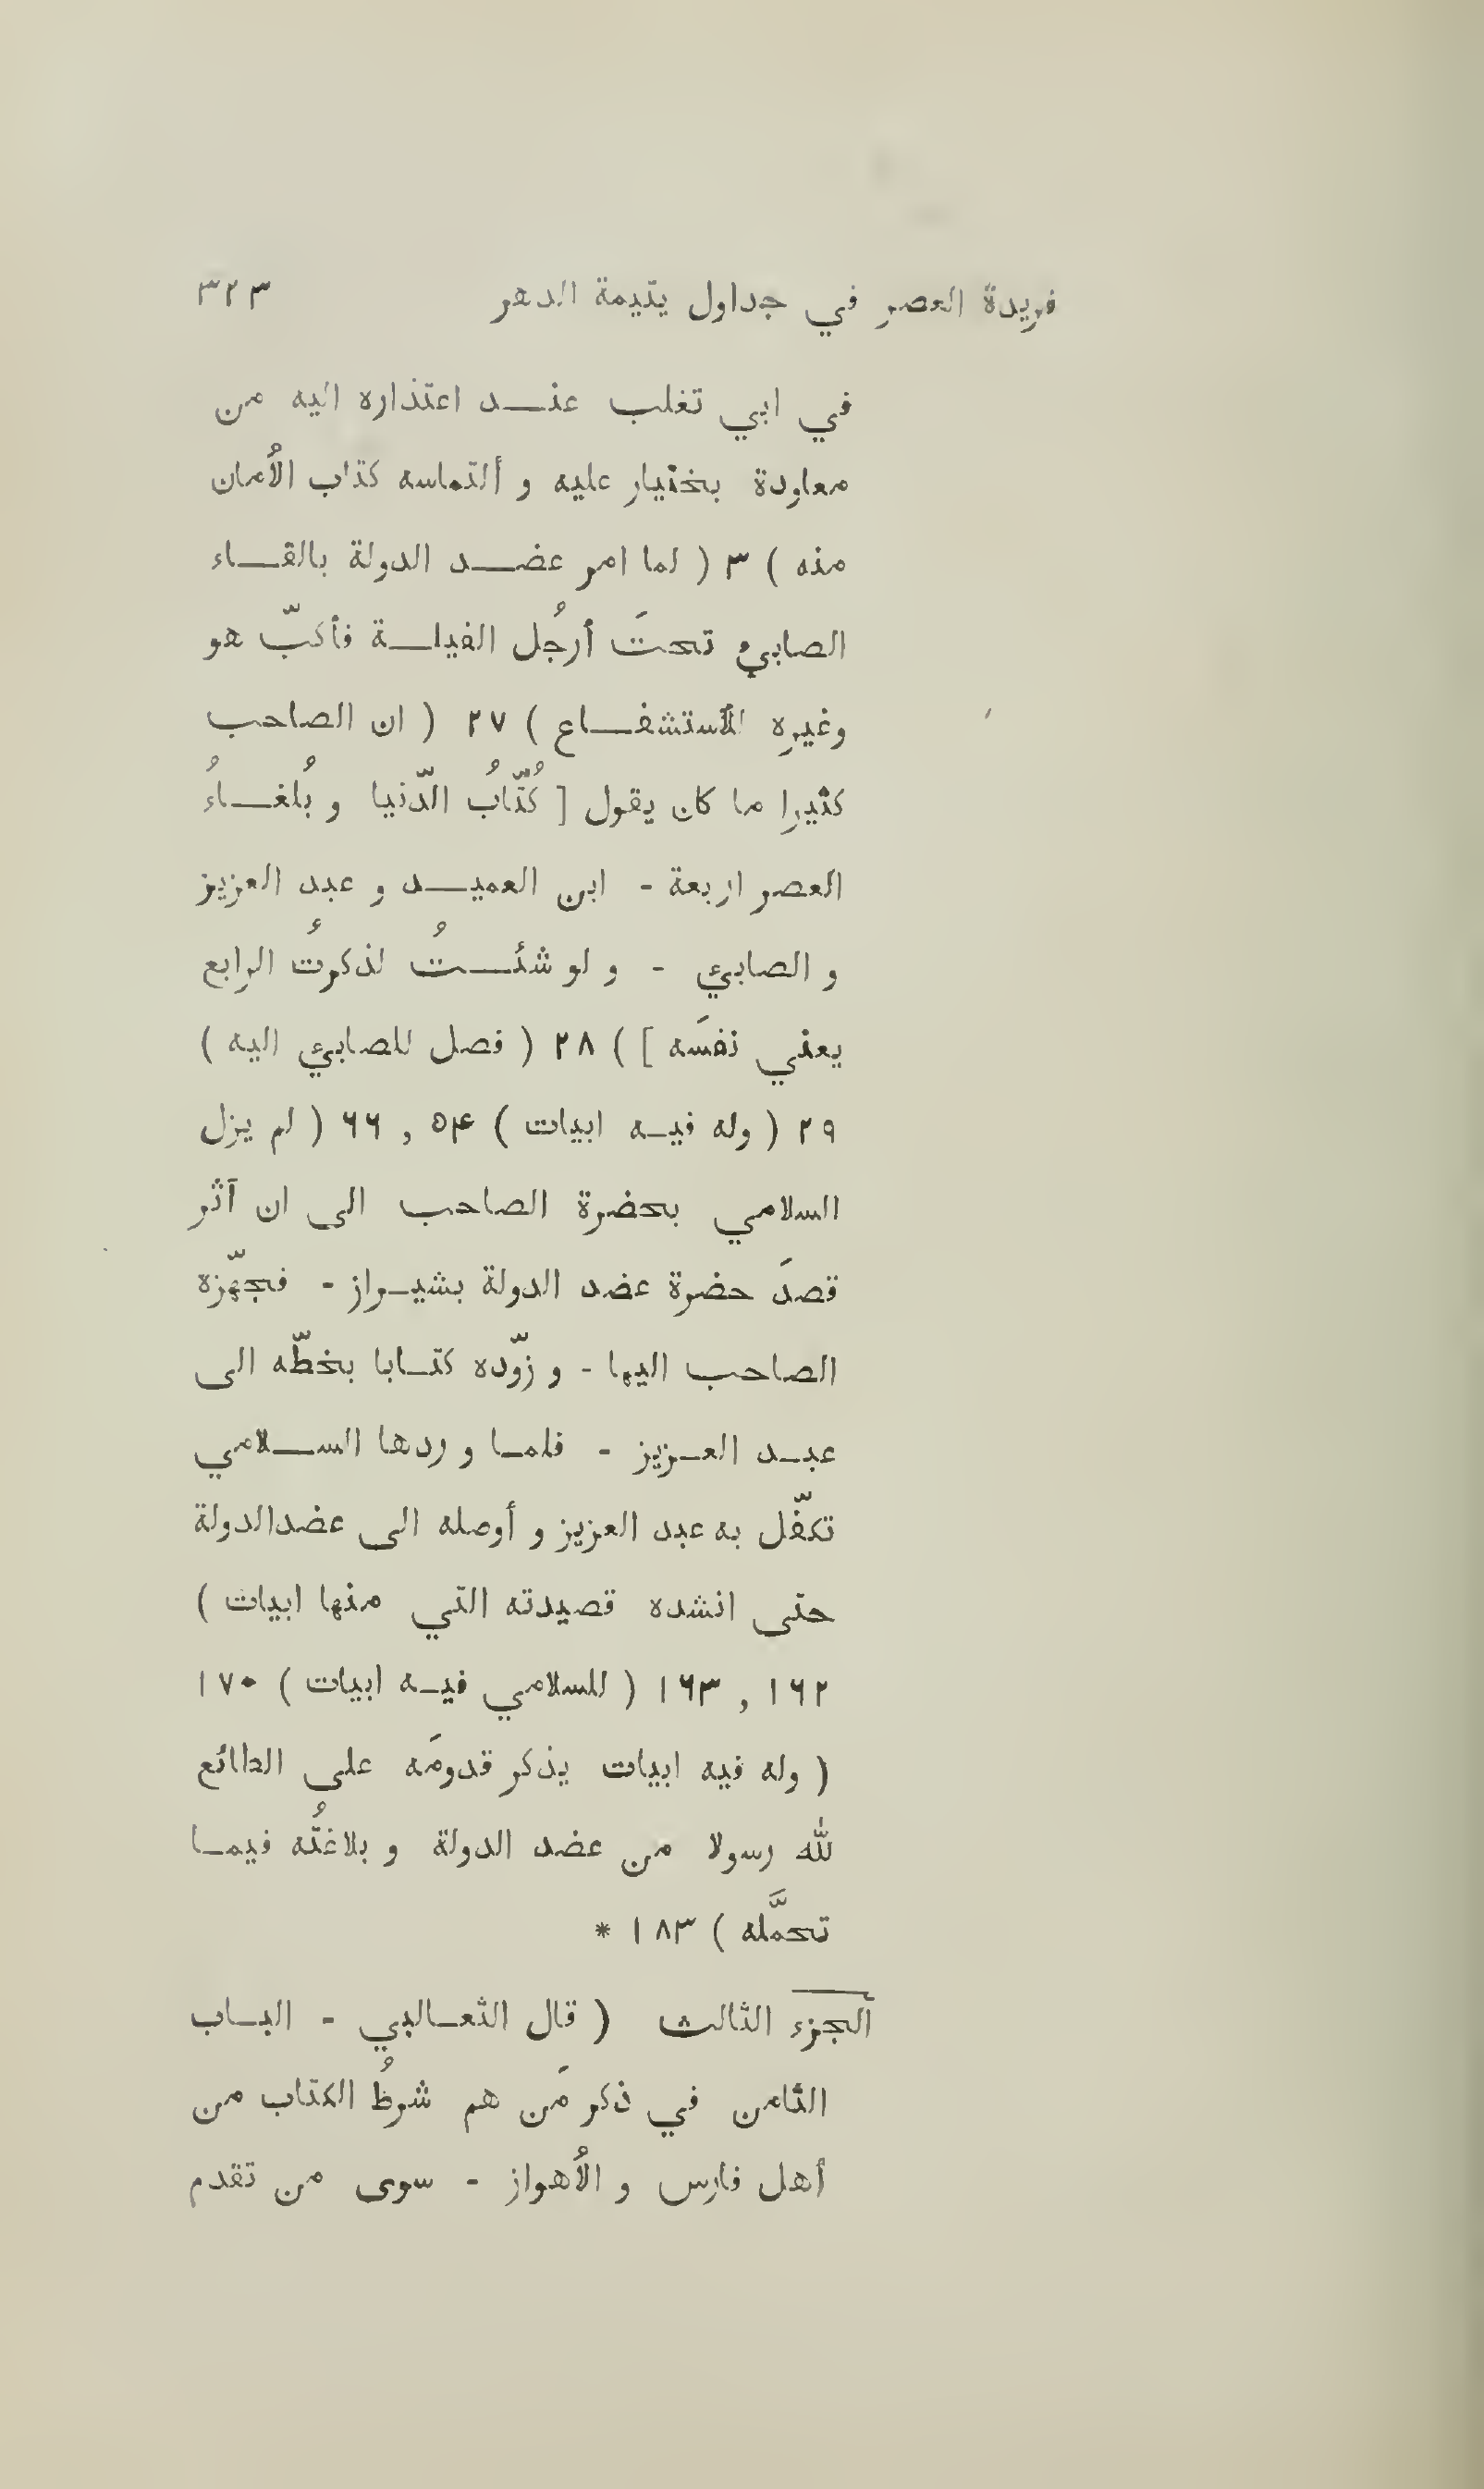 فريدة العصر في جداول يتيمة الدهر ٣٢٣
في ابي تغلب عنـــد اعتذاره اليه من
معاودة بختيار عليه و ألتماسه كتاب الأمان
منه ) ٣ ( لما امر عضـــد الدولة بالقـــاء
الصابيء تحتَ أرجُل الفيلـــة فأكبّ هو
وغيره للأستشفـــاع ) ٢٧ ( ان الصاحب
كثيرا ما كان يقول [ كُتّابُ الدّنيا و بُلغـــاءُ
العصر اربعة - ابن العميـــد و عبد العزيز
و الصابئ - و لو شئـــتُ لذكرتُ الرابع
يعني نفسَه ] ) ٢٨ ( فصل للصابئ اليه )
٢٩ ( وله فيـه ابيات ) ٥۴ , ٦٦ ( لم يزل
السلامي بحضرة الصاحب الى ان آثر
قصدَ حضرة عضد الدولة بشيـراز - فجهّزه
الصاحب اليها - و زوّده كتـابا بخطّه الى
عبـد العـزيز - فلمـا و ردها الســـلامي
تكفّل به عبد العزيز و أوصله الى عضدالدولة
حتى انشده قصيدته التي منها ابيات )
١٦٢ , ١٦٣ ( للسلامي فيـه ابيات ) ١٧٠
( وله فيه ابيات يذكر قدومَه على الطائع
لله رسولا من عضد الدولة و بلاغتُه فيمـا
تحمَّله ) ١٨٣ *
الجزء الثالث ( قال الثعـالبي - البـاب
الثامن في ذكر مَن هم شرطُ الكتاب من
أهل فارس و الأهواز - سوى من تقدم